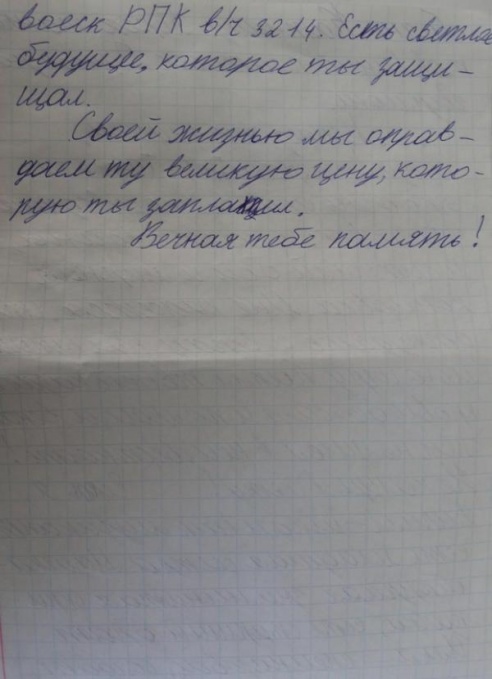 войск РПК в/ч 3214. Есть светлое
будущее, которое ты защи-
щал.
Своей жизнью мы оправ-
даем ту великую цену, кото-
рую ты заплатил.
Вечная тебе память!